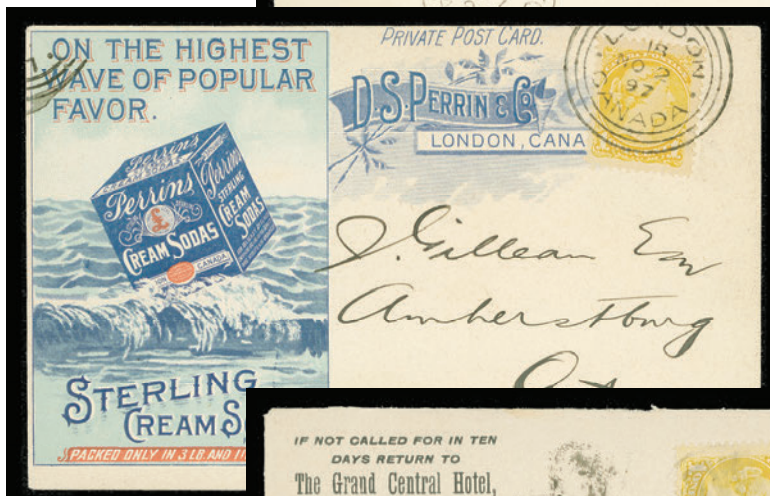 ON THE HIGHEST
WAVE OF POPULAR
FAVOR.
Perrins
Perrins
£
CREAM SODAS
CANADA
Perrins
STERLING
CREAM
SODAS
STERLING
CREAM S
PACKED ONLY IN 3 LB. AND 1
PRIVATE POST CARD.
D.S. PERRIN & Co
LONDON, CANA
LONDON
18
NO 2
97
CANADA
J. Gillean Esq
Amherstburg
IF NOT CALLED FOR IN TEN
DAYS RETURN TO
The Grand Central Hotel,